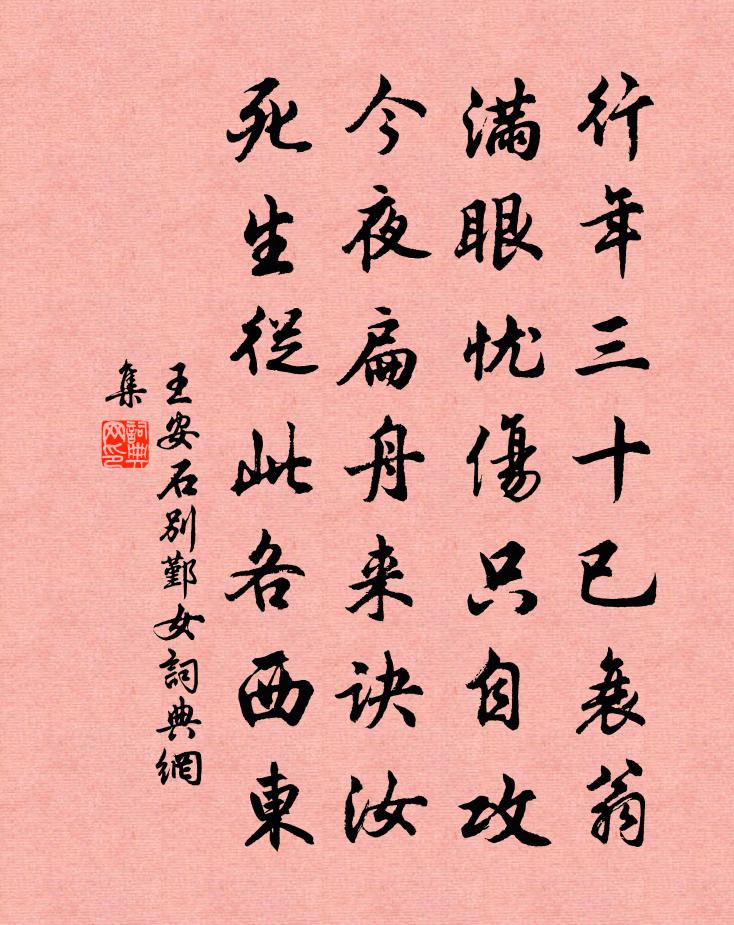 行年三十已衰翁
满眼忧傷只自攻
今夜扁舟来诀汝
死生從此各西東
王安石别鄞女詞典網
集
詞典
网印